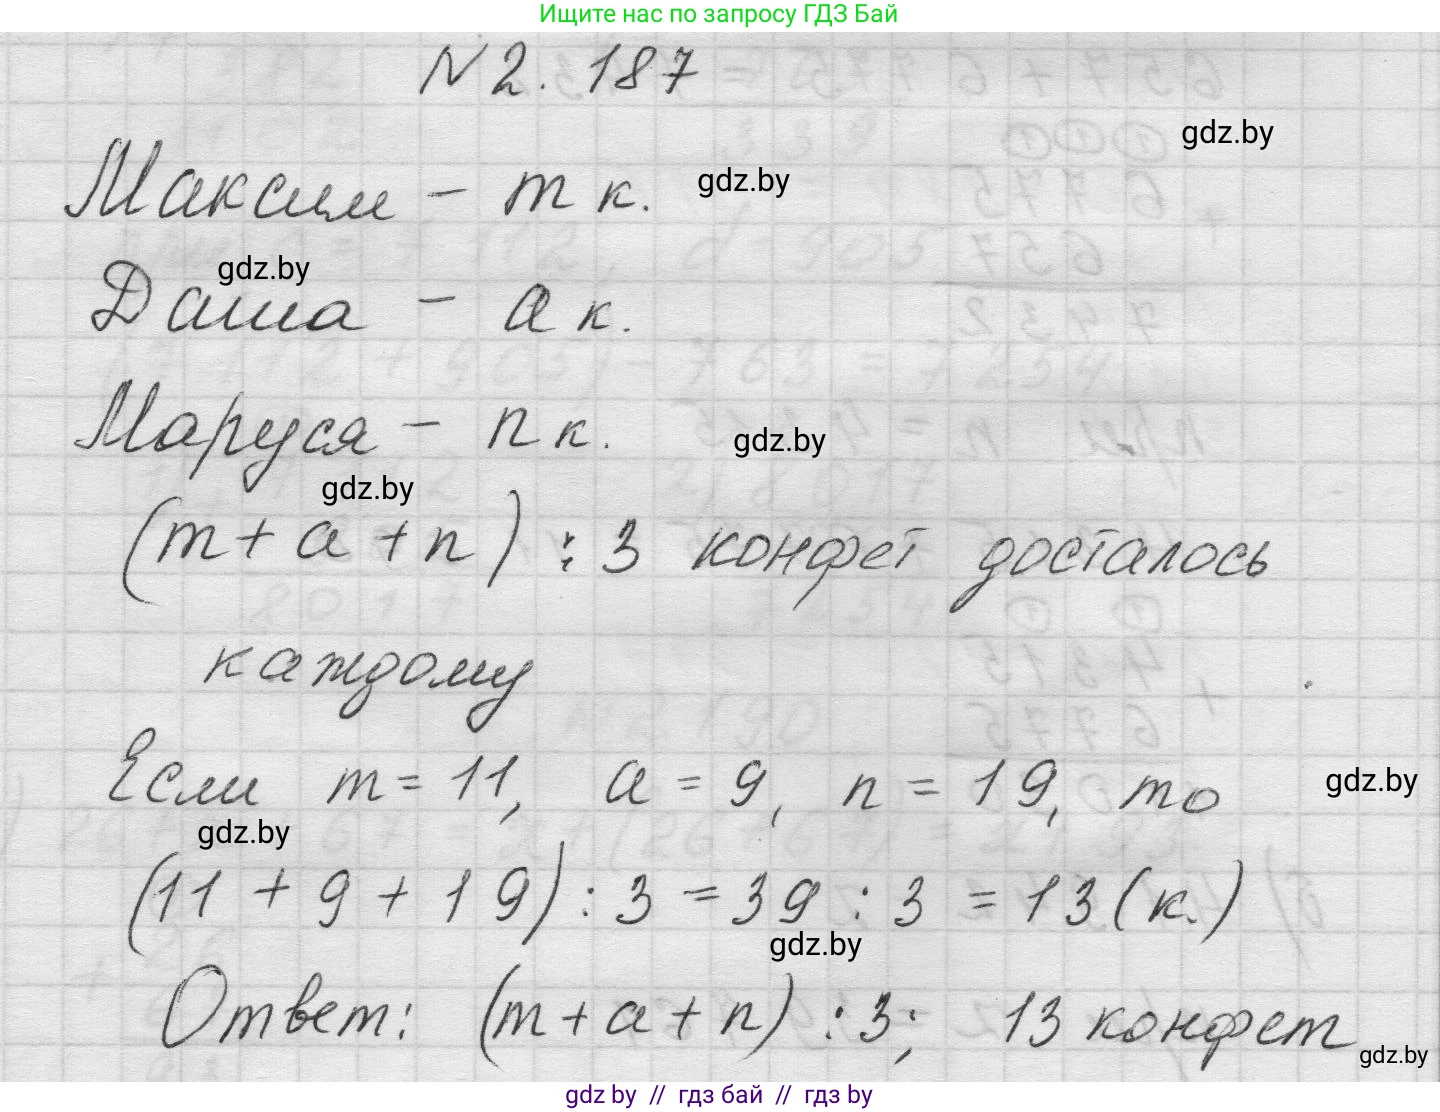 Ищите нас по запросу ГДЗ Бай
N 2. 187
gdz.by
Максим - m к.
gdz.by
gdz.by
Даша - a к.
Маруся - n к.
gdz.by
gdz.by
(m + a + n) : 3 конфет досталось
каждому
Если m = 11, a = 9, n = 19, то
gdz.by
gdz.by
(11 + 9 + 19) : 3 = 39 : 3 = 13 (к.)
gdz.by
Ответ: (m + a + n) : 3; 13 конфет
gdz.by
gdz.by // гдз бай // гдз by